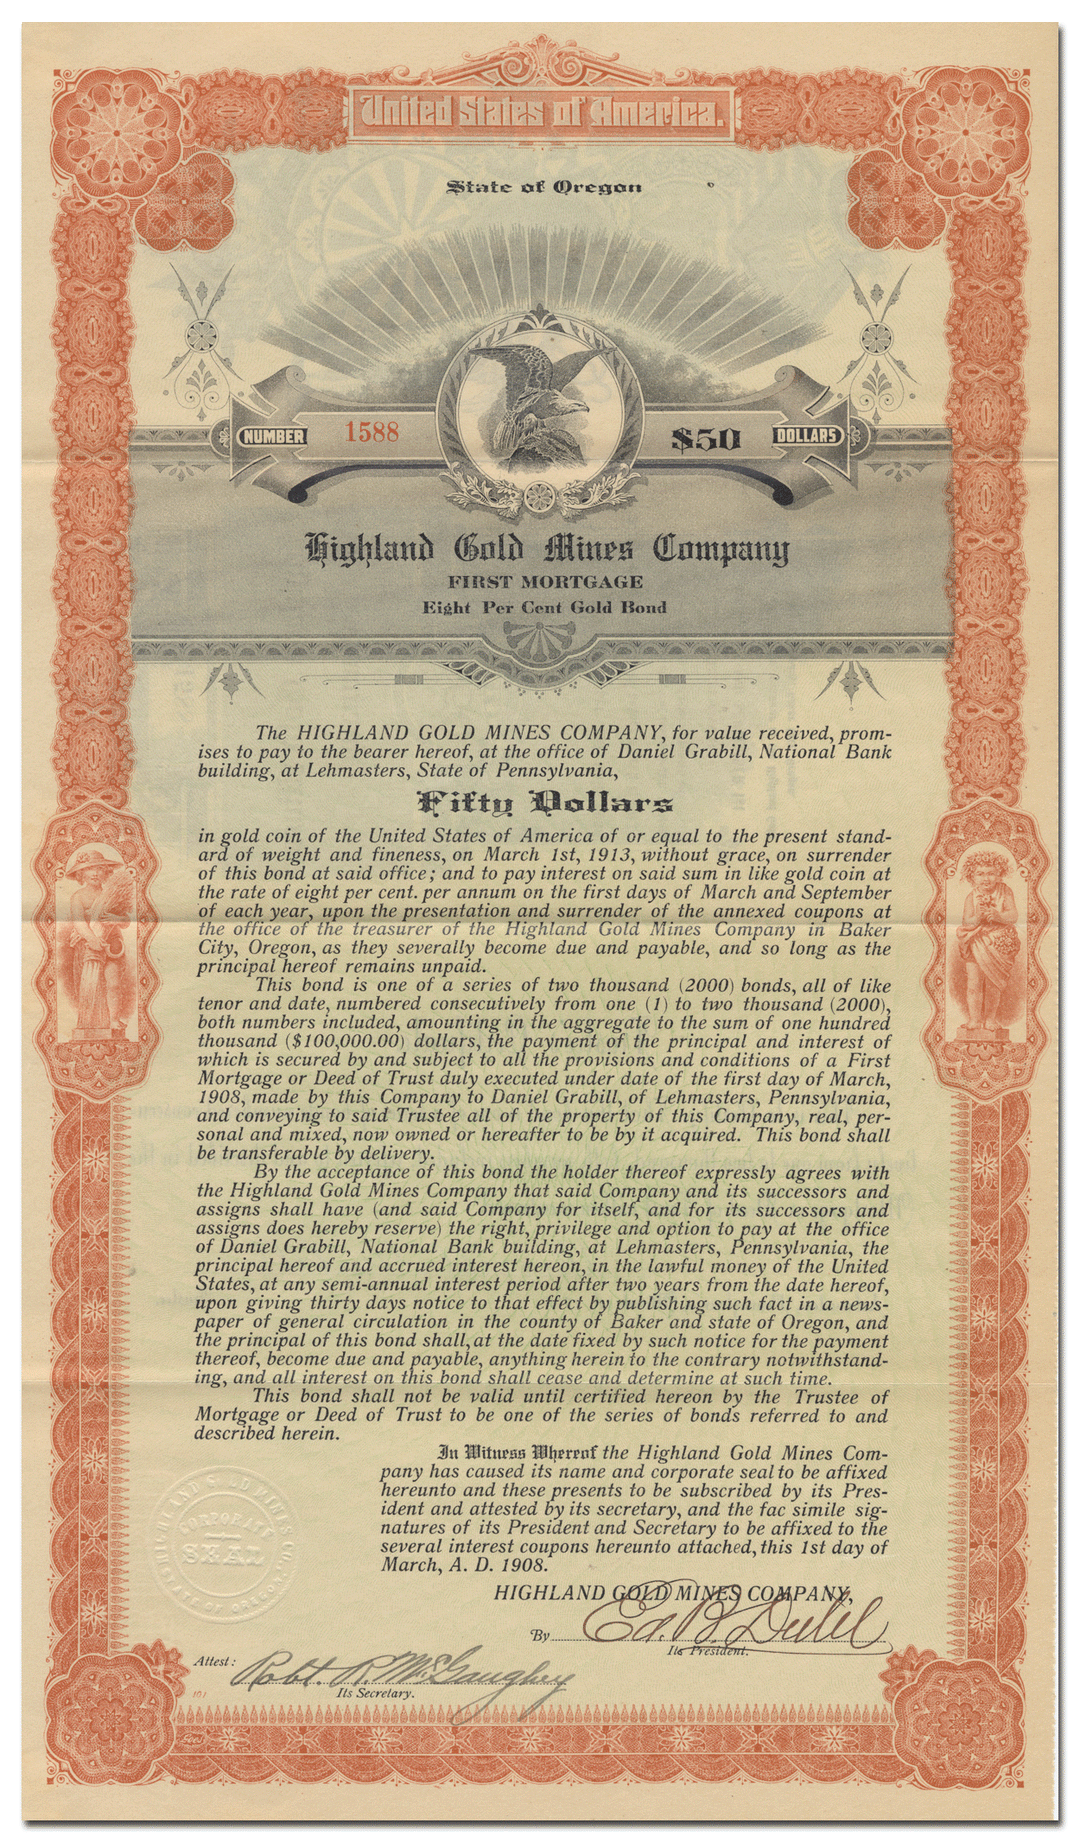 United States of America.
State of Oregon
NUMBER 1588 $50 DOLLARS
Highland Gold Mines Company
FIRST MORTGAGE
Eight Per Cent Gold Bond
The HIGHLAND GOLD MINES COMPANY, for value received, prom-
ises to pay to the bearer hereof, at the office of Daniel Grabill, National Bank
building, at Lehmasters, State of Pennsylvania,
Fifty Dollars
in gold coin of the United States of America of or equal to the present stand-
ard of weight and fineness, on March 1st, 1913, without grace, on surrender
of this bond at said office; and to pay interest on said sum in like gold coin at
the rate of eight per cent. per annum on the first days of March and September
of each year, upon the presentation and surrender of the annexed coupons at
the office of the treasurer of the Highland Gold Mines Company in Baker
City, Oregon, as they severally become due and payable, and so long as the
principal hereof remains unpaid.
This bond is one of a series of two thousand (2000) bonds, all of like
tenor and date, numbered consecutively from one (1) to two thousand (2000),
both numbers included, amounting in the aggregate to the sum of one hundred
thousand ($100,000.00) dollars, the payment of the principal and interest of
which is secured by and subject to all the provisions and conditions of a First
Mortgage or Deed of Trust duly executed under date of the first day of March,
1908, made by this Company to Daniel Grabill, of Lehmasters, Pennsylvania,
and conveying to said Trustee all of the property of this Company, real, per-
sonal and mixed, now owned or hereafter to be by it acquired. This bond shall
be transferable by delivery.
By the acceptance of this bond the holder thereof expressly agrees with
the Highland Gold Mines Company that said Company and its successors and
assigns shall have (and said Company for itself, and for its successors and
assigns does hereby reserve) the right, privilege and option to pay at the office
of Daniel Grabill, National Bank building, at Lehmasters, Pennsylvania, the
principal hereof and accrued interest hereon, in the lawful money of the United
States, at any semi-annual interest period after two years from the date hereof,
upon giving thirty days notice to that effect by publishing such fact in a news-
paper of general circulation in the county of Baker and state of Oregon, and
the principal of this bond shall, at the date fixed by such notice for the payment
thereof, become due and payable, anything herein to the contrary notwithstand-
ing, and all interest on this bond shall cease and determine at such time.
This bond shall not be valid until certified hereon by the Trustee of
Mortgage or Deed of Trust to be one of the series of bonds referred to and
described herein.
In Witness Whereof the Highland Gold Mines Com-
pany has caused its name and corporate seal to be affixed
hereunto and these presents to be subscribed by its Pres-
ident and attested by its secretary, and the fac simile sig-
natures of its President and Secretary to be affixed to the
several interest coupons hereunto attached, this 1st day of
March, A. D. 1908.
HIGHLAND GOLD MINES COMPANY,
By Ed. B.
Its President.
Attest: Robt. R. McGaughey
Its Secretary.
CORPORATE
SEAL
STATE OF OREGON